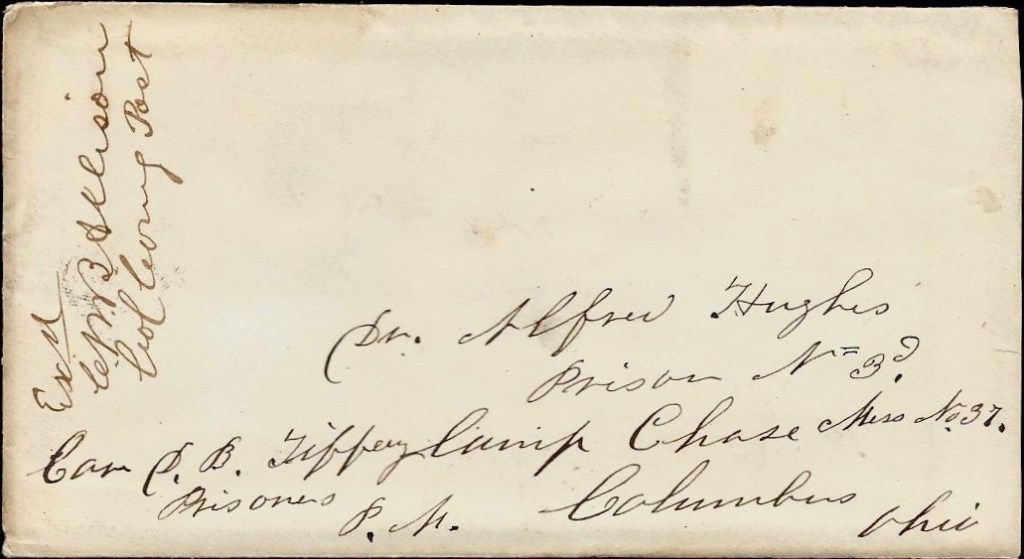 Exd
C W B Allison
Col Comg Post
Dr. Alfred Hughes
Prison No 3d.
Care S. B. Tippey Camp Chase Mess No. 37.
Prisoners
P. M.
Columbus
Ohio